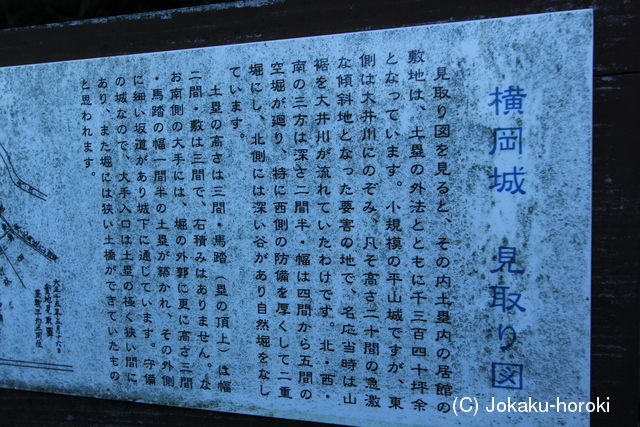 横岡城 見取り図
見取り図を見ると、その内土塁内の居館の
敷地は、土塁の外法とともに千三百四十坪余
となっています。小規模の平山城ですが、東
側は大井川にのぞみ、凡そ高さ二十間の急激
な傾斜地となった要害の地で、名応当時は山
裾を大井川が流れていたわけです。北・西・
南の三方は深さ二間半・幅は四間から五間の
空堀が廻り、特に西側の防備を厚くして二重
堀にし、北側には深い谷があり自然堀をなし
ています。
土塁の高さは三間・馬踏（塁の頂上）は幅
二間・敷は三間で、石積みはありません。な
お南側の大手には、堀の外郭に更に高さ三間
・馬踏の幅一間半の土塁が築かれ、その外側
に細い坂道があり城下に通じています。守備
の城なので、大手入口は土塁の極く狭い間に
あり、また堀には狭い土橋ができていたもの
と思われます。
(C) Jokaku-horoki